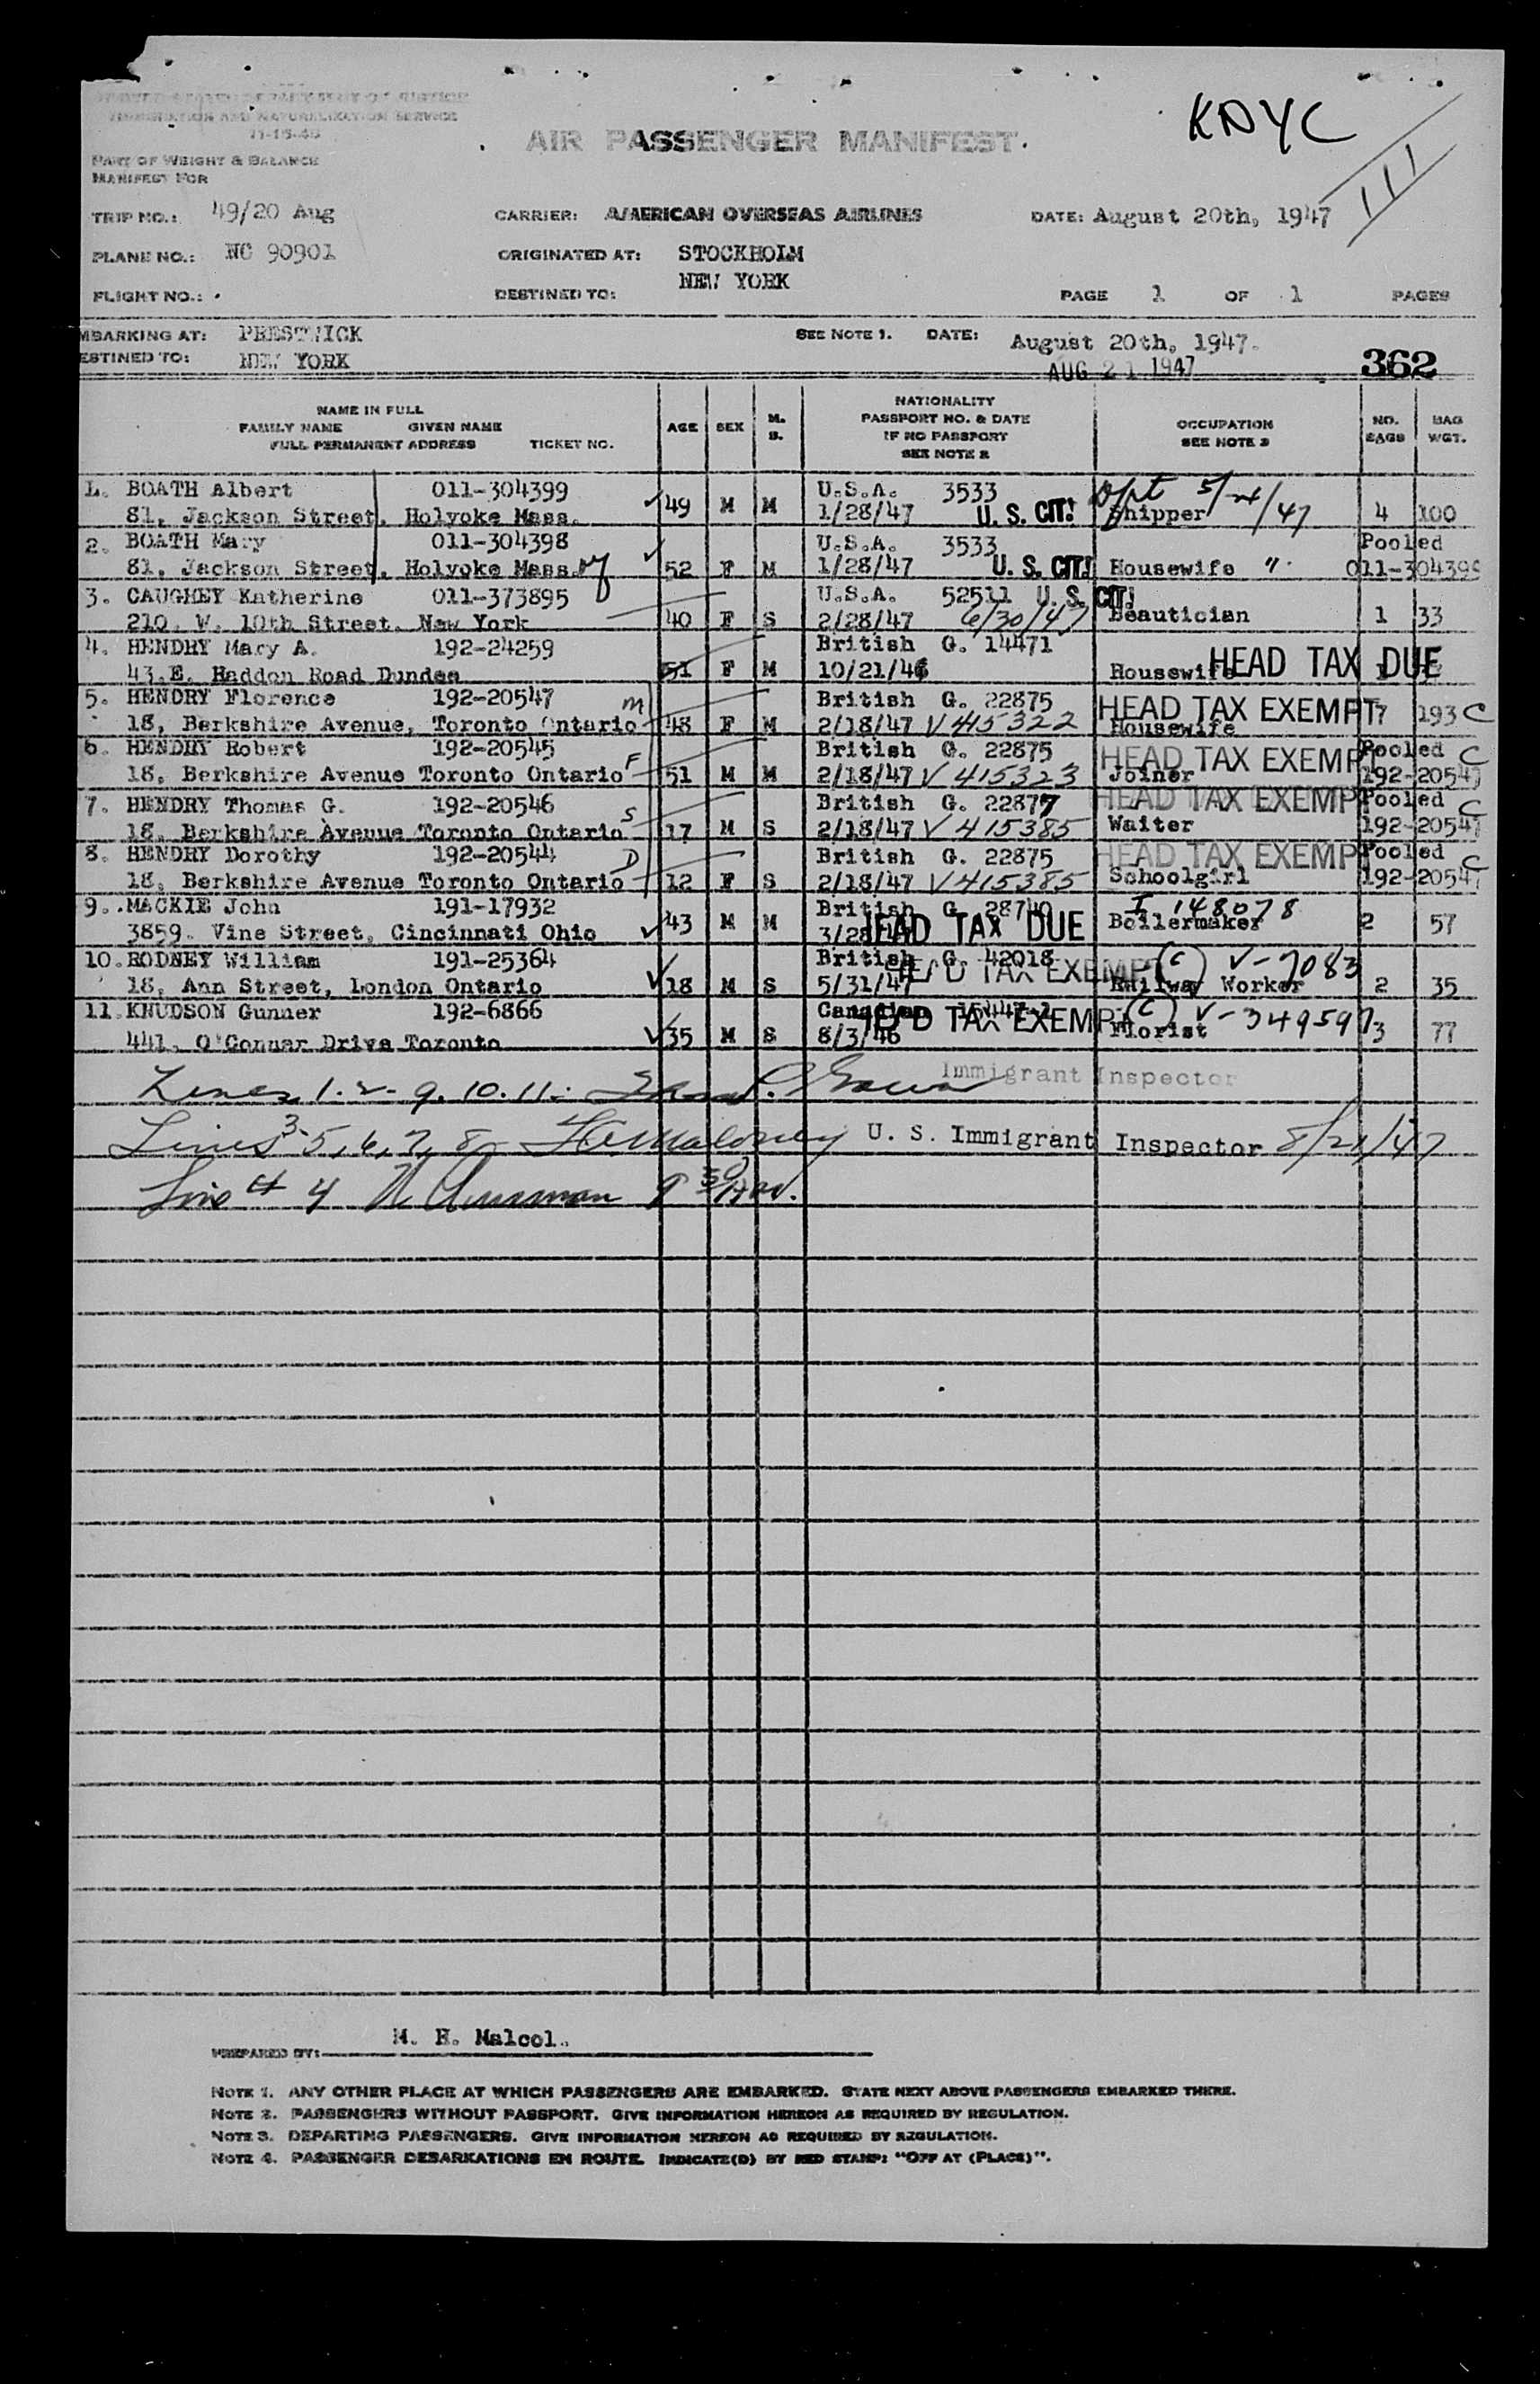 UNITED STATES DEPARTMENT OF JUSTICE
IMMIGRATION AND NATURALIZATION SERVICE
11-15-45
KNYC
AIR PASSENGER MANIFEST
111
PART OF WEIGHT & BALANCE
MANIFEST FOR
TRIP NO.: 49/20 Aug CARRIER: AMERICAN OVERSEAS AIRLINES DATE: August 20th, 1947
PLANE NO.: NC 90901 ORIGINATED AT: STOCKHOLM
FLIGHT NO.: DESTINED TO: NEW YORK PAGE 1 OF 1 PAGES
MBARKING AT: PRESTWICK SEE NOTE 1. DATE: August 20th, 1947.
ESTINED TO: NEW YORK AUG 21 1947 362
NAME IN FULL
FAMILY NAME GIVEN NAME
FULL PERMANENT ADDRESS TICKET NO. AGE SEX M. S. NATIONALITY PASSPORT NO. & DATE IF NO PASSPORT SEE NOTE 2 OCCUPATION SEE NOTE 3 NO. BAGS BAG WGT.
1. BOATH Albert 011-304399 U.S.A. 3533 Dpt 5/24/47
81, Jackson Street, Holyoke Mass. 49 M M 1/28/47 U. S. CIT. Shipper 4 100
2. BOATH Mary 011-304398 U.S.A. 3533 Pooled
81, Jackson Street, Holyoke Mass. 52 F M 1/28/47 U. S. CIT. Housewife " 011-304399
3. CAUGHEY Katherine 011-373895 U.S.A. 52511 U. S. CIT.
210, W. 10th Street, New York 40 F S 2/28/47 6/30/47 Beautician 1 33
4. HENDRY Mary A. 192-24259 British G. 14471
43.E. Haddon Road Dundee 51 F M 10/21/46 Housewife HEAD TAX DUE
5. HENDRY Florence 192-20547 M British G. 22875 HEAD TAX EXEMPT
18, Berkshire Avenue, Toronto Ontario 48 F M 2/18/47 V 415322 Housewife 7 193 C
6. HENDRY Robert 192-20545 F British G. 22875 HEAD TAX EXEMPT Pooled C
18, Berkshire Avenue Toronto Ontario 51 M M 2/18/47 V 415323 Joiner 192-20547
7. HENDRY Thomas G. 192-20546 S British G. 22877 HEAD TAX EXEMPT Pooled C
18, Berkshire Avenue Toronto Ontario 17 M S 2/18/47 V 415385 Waiter 192-20547
8. HENDRY Dorothy 192-20544 D British G. 22875 HEAD TAX EXEMPT Pooled C
18, Berkshire Avenue Toronto Ontario 12 F S 2/18/47 V 415385 Schoolgirl 192-20547
9. MACKIE John 191-17932 British G. 28740 I 148078
3859. Vine Street, Cincinnati Ohio 43 M M HEAD TAX DUE Boilermaker 2 57
10. RODNEY William 191-25364 British G. 42018 HEAD TAX EXEMPT (C) V-7083
18, Ann Street, London Ontario 18 M S 5/31/47 Railway Worker 2 35
11. KNUDSON Gunner 192-6866 Canadian HEAD TAX EXEMPT (C) V-349597
441, O'Connar Drive Toronto 35 M S 8/3/46 Florist 3 77
Lines 1. 2 - 9. 10. 11. Immigrant Inspector
Lines 3-5, 6, 7, 8 U. S. Immigrant Inspector 8/21/47
Line # 4
PREPARED BY: M. H. Malcol.
NOTE 1. ANY OTHER PLACE AT WHICH PASSENGERS ARE EMBARKED. STATE NEXT ABOVE PASSENGERS EMBARKED THERE.
NOTE 2. PASSENGERS WITHOUT PASSPORT. GIVE INFORMATION HEREON AS REQUIRED BY REGULATION.
NOTE 3. DEPARTING PASSENGERS. GIVE INFORMATION HEREON AS REQUIRED BY REGULATION.
NOTE 4. PASSENGER DEBARKATIONS EN ROUTE. INDICATE(D) BY RED STAMP: "OFF AT (PLACE)".